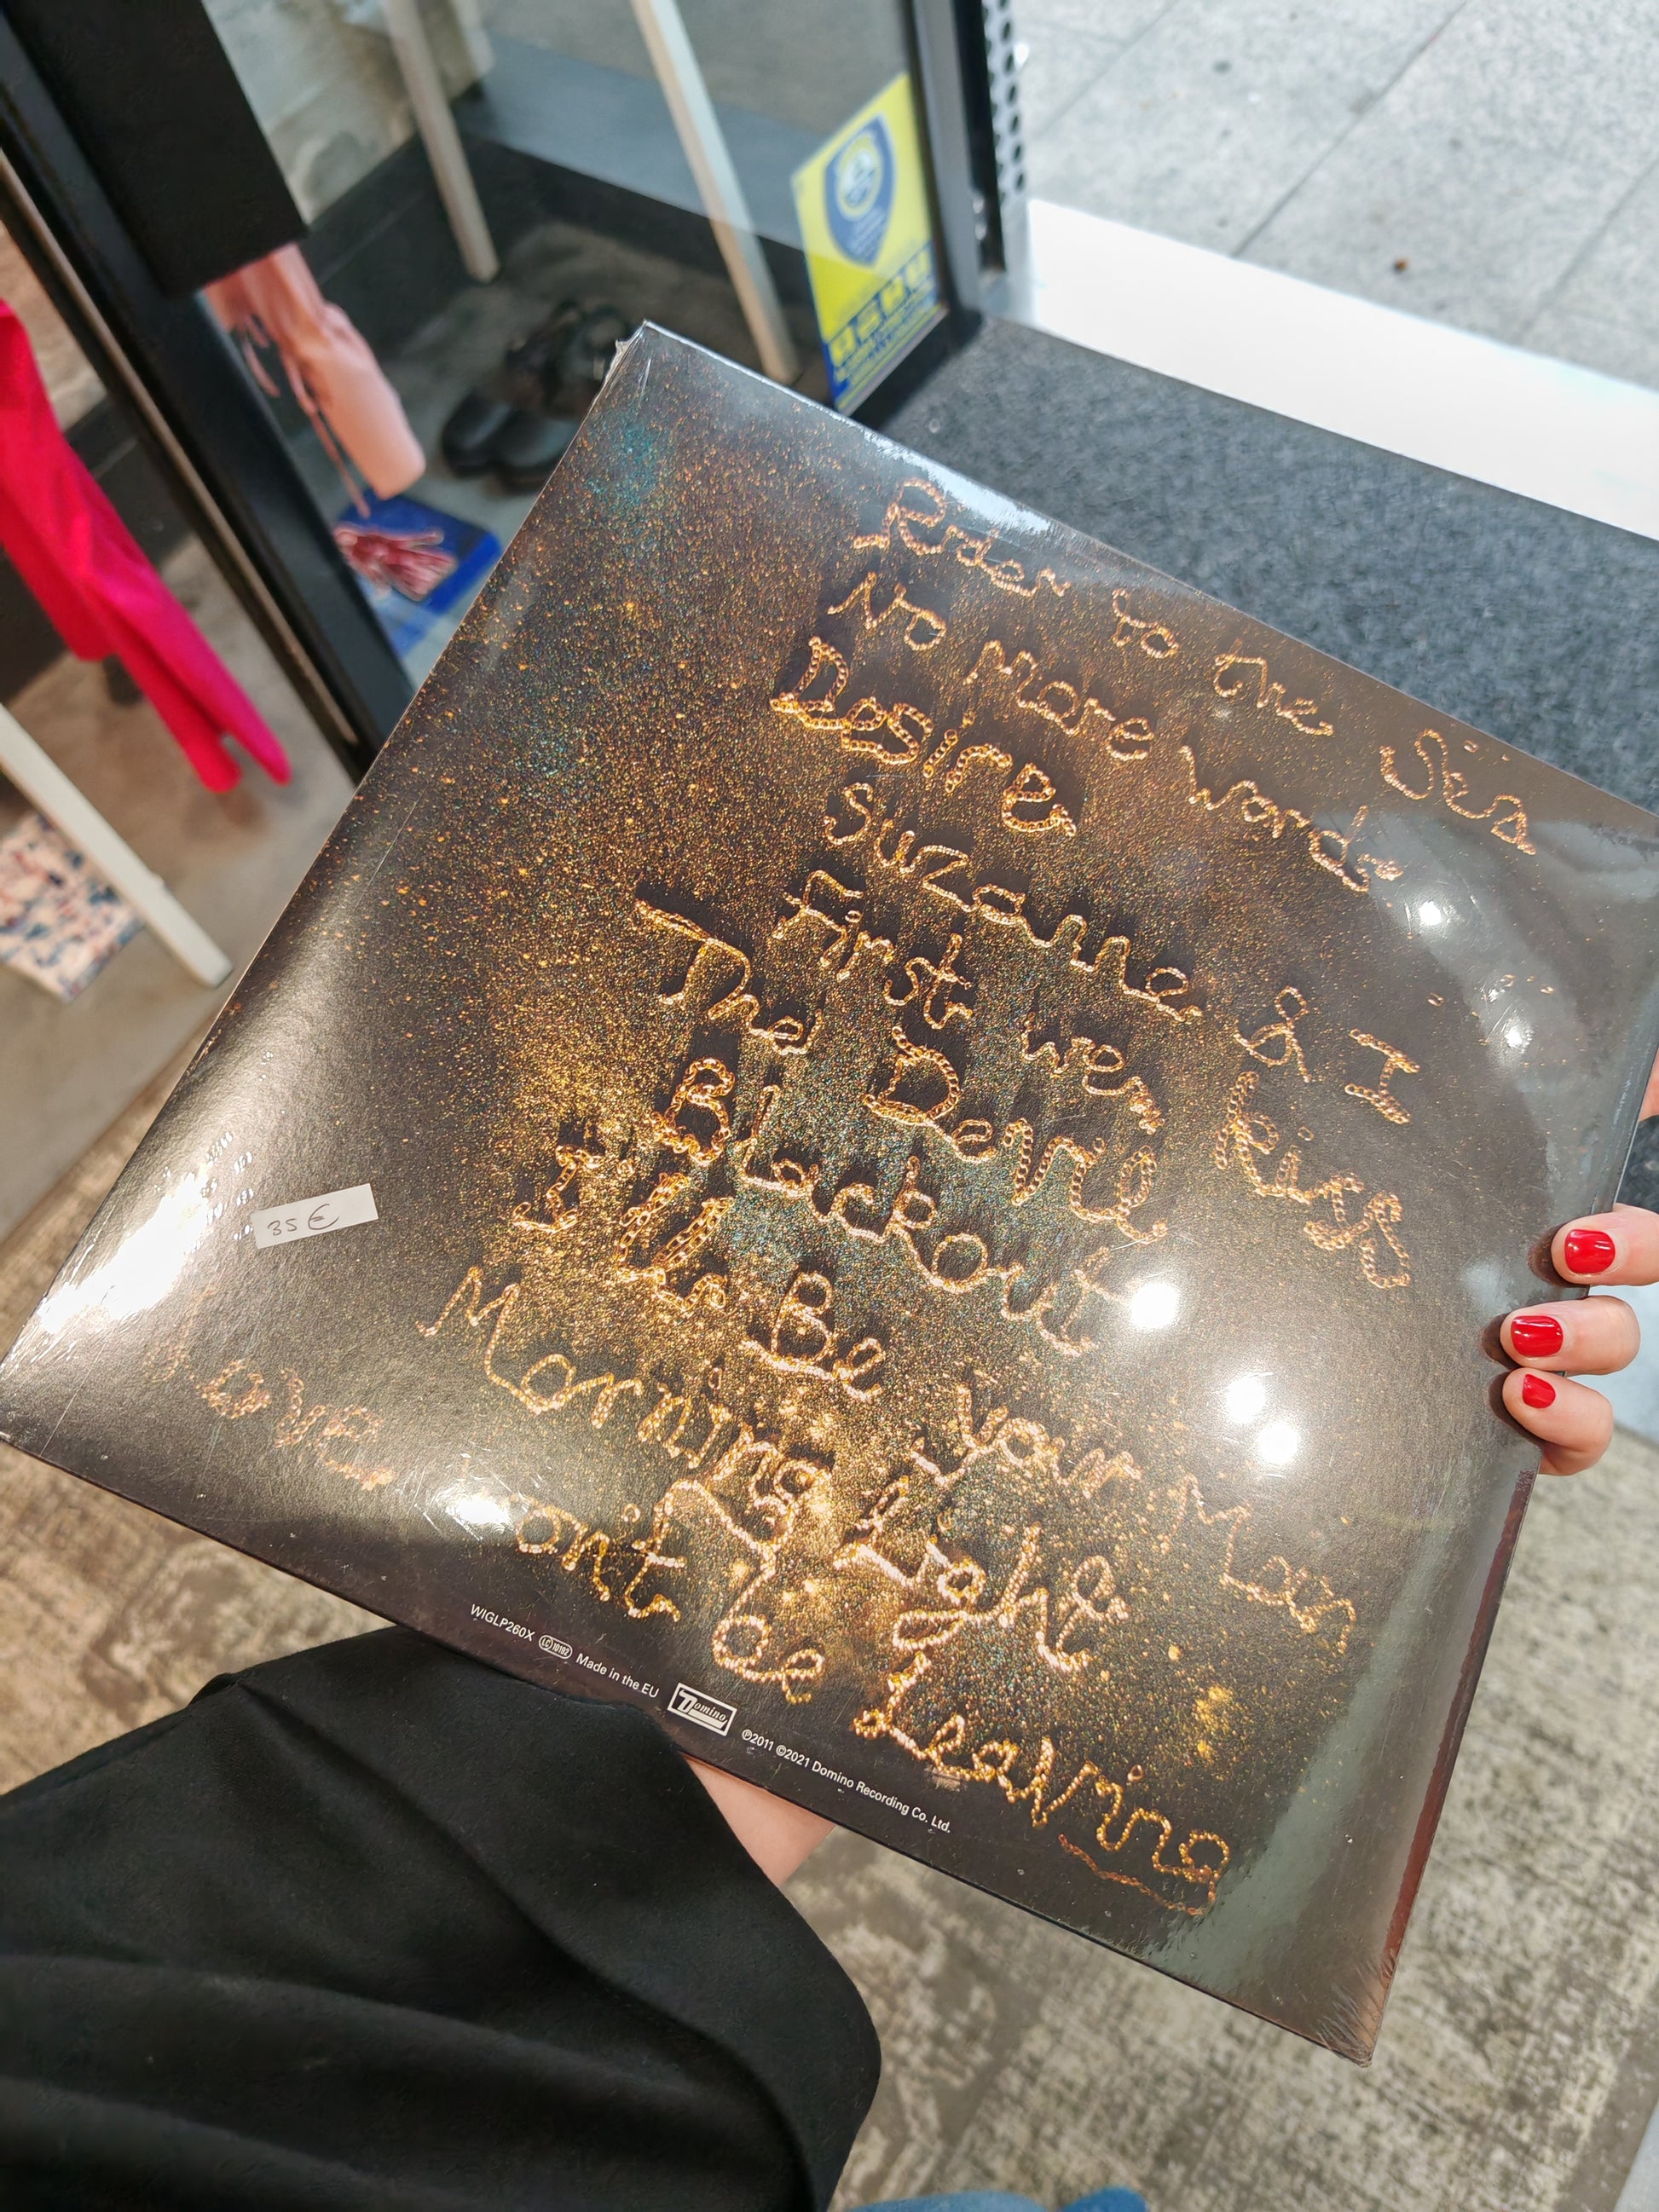 Rider to the Sea
No More Words
Desire
Suzanne & I
First we Kiss
The Devil
Blackout
I'll Be your Man
Morning Light
Love Won't be Leaving
35€
WIGLP260X LC 10192 Made in the EU Domino ℗2011 ©2021 Domino Recording Co. Ltd.